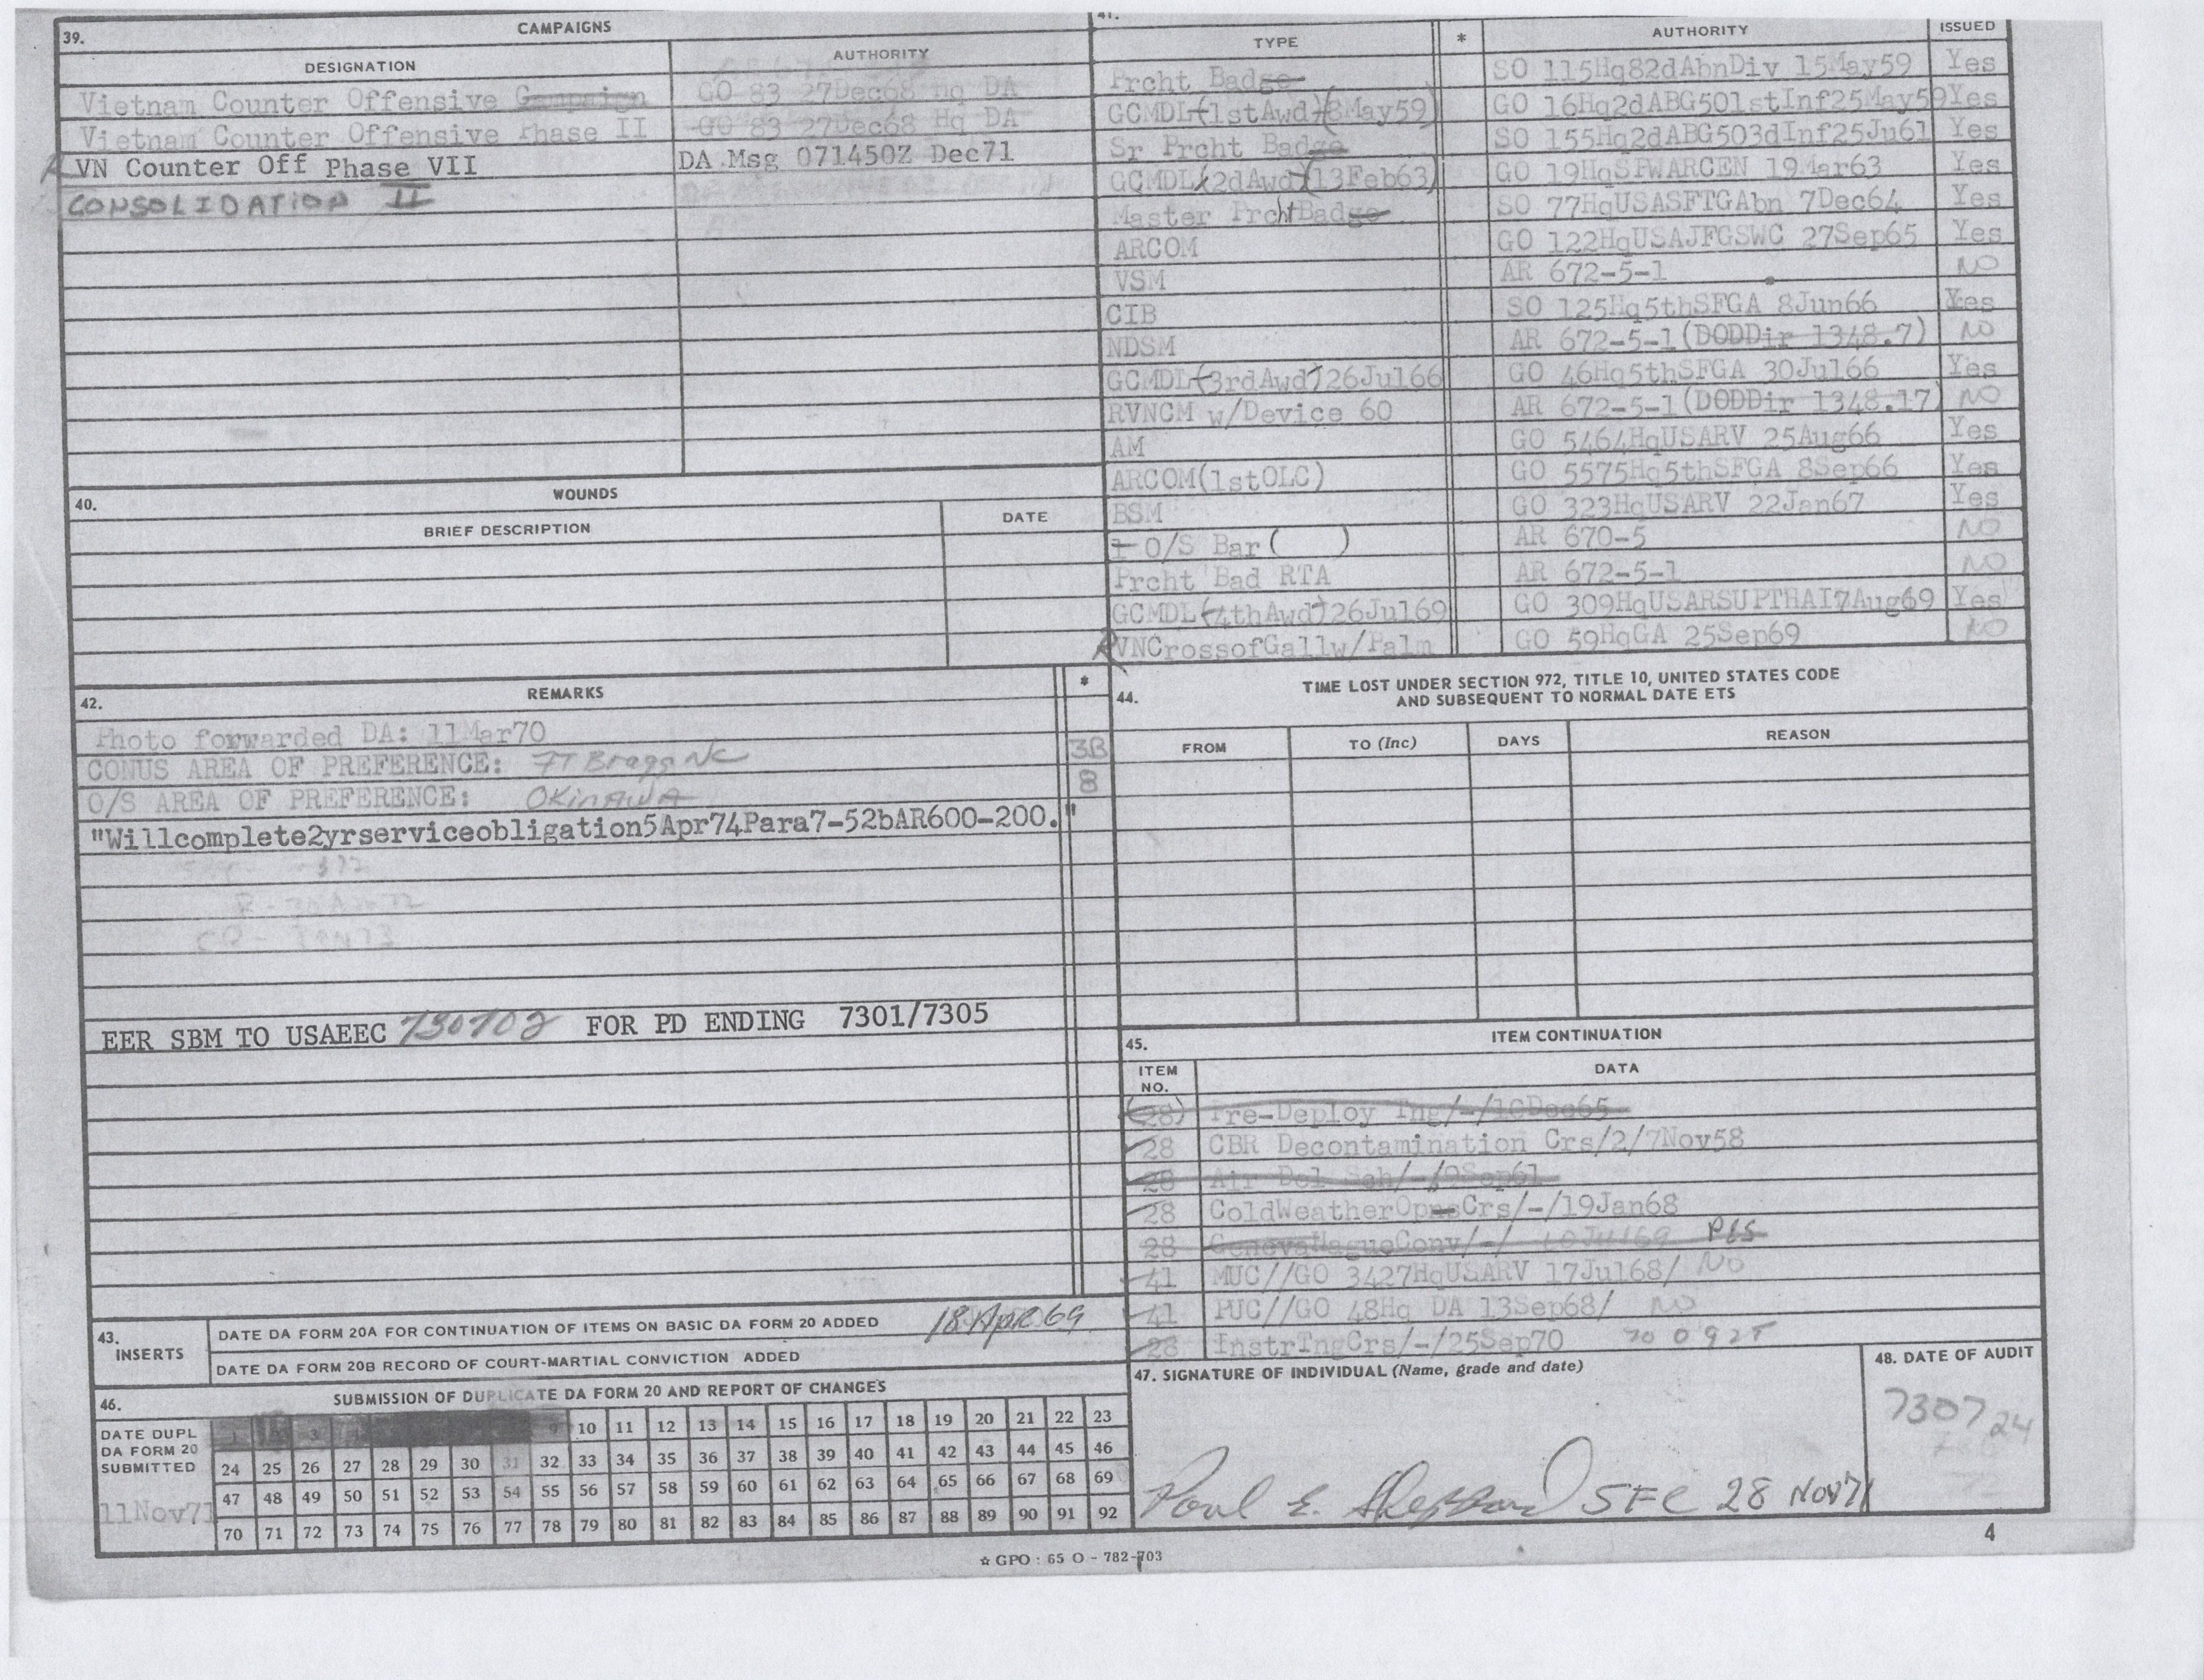 39.
CAMPAIGNS
DESIGNATION
AUTHORITY
Vietnam Counter Offensive Campaign
GO 83 27Dec68 Hq DA
Vietnam Counter Offensive Phase II
GO 83 27Dec68 Hq DA
VN Counter Off Phase VII
DA Msg 071450Z Dec71
CONSOLIDATION II
40.
WOUNDS
BRIEF DESCRIPTION
DATE
41.
TYPE
*
AUTHORITY
ISSUED
Prcht Badge
SO 115Hq82dAbnDiv 15May59
Yes
GCMDL(1stAwd)(8May59)
GO 16Hq2dABG501stInf25May59
Yes
Sr Prcht Badge
SO 155Hq2dABG503dInf25Ju61
Yes
GCMDL(2dAwd)(13Feb63)
GO 19HqSPWARCEN 19Mar63
Yes
Master PrchtBadge
SO 77HqUSASFTGAbn 7Dec64
Yes
ARCOM
GO 122HqUSAJFGSWC 27Sep65
Yes
VSM
AR 672-5-1
NO
CIB
SO 125Hq5thSFGA 8Jun66
Yes
NDSM
AR 672-5-1(DODDir 1348.7)
NO
GCMDL(3rdAwd)26Jul66
GO 46Hq5thSFGA 30Jul66
Yes
RVNCM w/Device 60
AR 672-5-1(DODDir 1348.17)
NO
AM
GO 5464HqUSARV 25Aug66
Yes
ARCOM(1stOLC)
GO 5575Hq5thSFGA 8Sep66
Yes
BSM
GO 323HqUSARV 22Jan67
Yes
1 O/S Bar ( )
AR 670-5
NO
Prcht Bad RTA
AR 672-5-1
NO
GCMDL(4thAwd)26Jul69
GO 309HqUSARSUPTHAI7Aug69
Yes
RVNCrossofGallw/Palm
GO 59HqGA 25Sep69
NO
42.
REMARKS
*
Photo forwarded DA: 11Mar70
CONUS AREA OF PREFERENCE: FT Bragg NC
3B
O/S AREA OF PREFERENCE: OKinAWA
8
"Willcomplete2yrserviceobligation5Apr74Para7-52bAR600-200."
EER SBM TO USAEEC 730702 FOR PD ENDING 7301/7305
43.
INSERTS
DATE DA FORM 20A FOR CONTINUATION OF ITEMS ON BASIC DA FORM 20 ADDED
18 Apr 69
DATE DA FORM 20B RECORD OF COURT-MARTIAL CONVICTION ADDED
44.
TIME LOST UNDER SECTION 972, TITLE 10, UNITED STATES CODE
AND SUBSEQUENT TO NORMAL DATE ETS
FROM
TO (Inc)
DAYS
REASON
45.
ITEM CONTINUATION
ITEM
NO.
DATA
(28) Pre-Deploy Tng/-/10Dec65
28 CBR Decontamination Crs/2/7Nov58
28 Air Del Sch/-/9Sep61
28 ColdWeatherOpnsCrs/-/19Jan68
28 GenevaHagueConv/-/ 10Jul69
41 MUC//GO 3427HqUSARV 17Jul68/ NO
41 PUC//GO 48Hq DA 13Sep68/ NO
28 InstrTngCrs/-/25Sep70 700925
46.
SUBMISSION OF DUPLICATE DA FORM 20 AND REPORT OF CHANGES
DATE DUPL
DA FORM 20
SUBMITTED
11Nov71
1 3 9 10 11 12 13 14 15 16 17 18 19 20 21 22 23
24 25 26 27 28 29 30 31 32 33 34 35 36 37 38 39 40 41 42 43 44 45 46
47 48 49 50 51 52 53 54 55 56 57 58 59 60 61 62 63 64 65 66 67 68 69
70 71 72 73 74 75 76 77 78 79 80 81 82 83 84 85 86 87 88 89 90 91 92
47. SIGNATURE OF INDIVIDUAL (Name, grade and date)
Paul E. Sheppard SFC 28 Nov71
48. DATE OF AUDIT
730724
4
☆ GPO : 65 O - 782-703